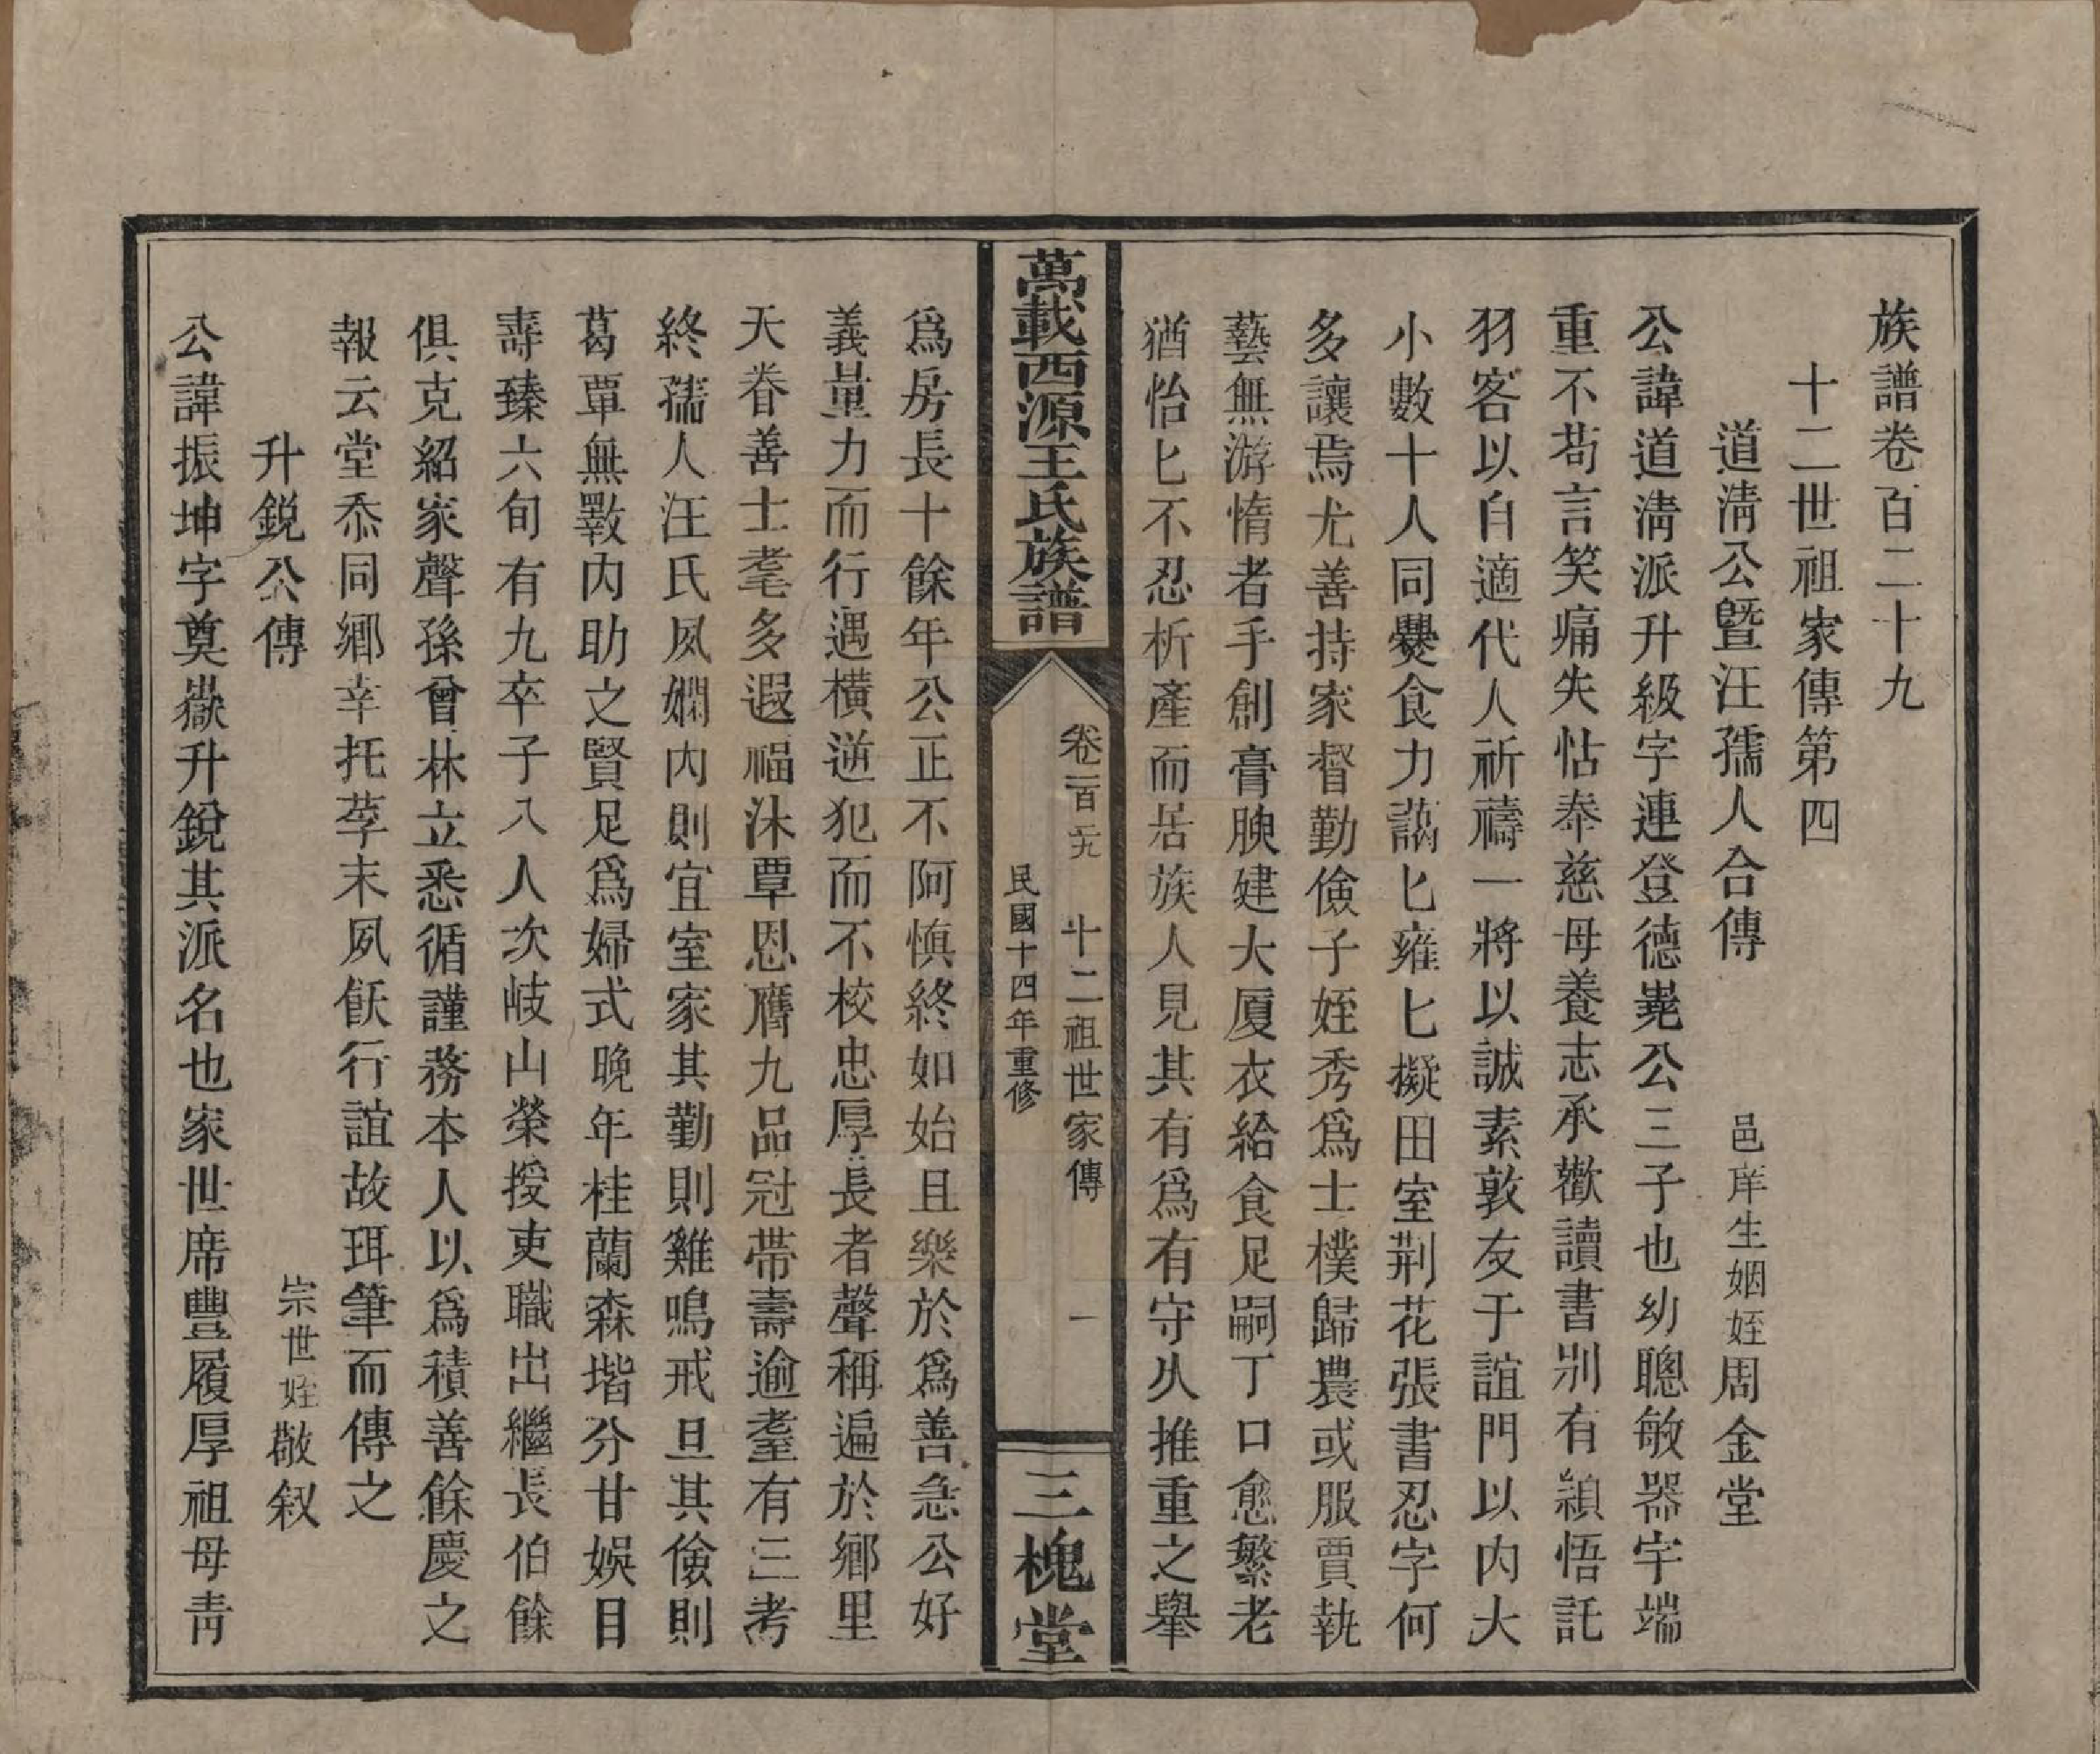 族譜卷百二十九
十二世祖家傳第四
道淸公暨汪孺人合傳　邑庠生姻姪周金堂
公諱道淸派升級字連登德嵬公三子也幼聰敏器宇端
重不苟言笑痛失怙奉慈母養志承歡讀書別有穎悟託
羽客以自適代人祈禱一將以誠素敦友于誼門以内大
小數十人同爨食力藹匕雍匕擬田室荆花張書忍字何
多讓焉尤善持家督勤儉子姪秀爲士樸歸農或服賈執
藝無游惰者手創膏腴建大厦衣給食足嗣丁口愈繁老
猶怡匕不忍析產而居族人見其有爲有守乆推重之舉
萬載西源王氏族譜
卷一百二九　十二祖世家傳　一
民國十四年重修
三槐堂
爲房長十餘年公正不阿愼終如始且樂於爲善急公好
義量力而行遇橫逆犯而不校忠厚長者聲稱遍於鄕里
天眷善士耄多遐福沐覃恩膺九品冠帶壽逾耋有三考
終孺人汪氏夙嫻内則宜室家其勤則雞鳴戒旦其儉則
葛覃無斁内助之賢足爲婦式晚年桂蘭森堦分甘娛目
壽臻六旬有九卒子八人次岐山榮授吏職出繼長伯餘
俱克紹家聲孫曾林立悉循謹務本人以爲積善餘慶之
報云堂忝同鄕幸托莩末夙飫行誼故珥筆而傳之
升銳公傳　宗世姪敬叙
公諱振坤字奠嶽升銳其派名也家世席豐履厚祖母靑